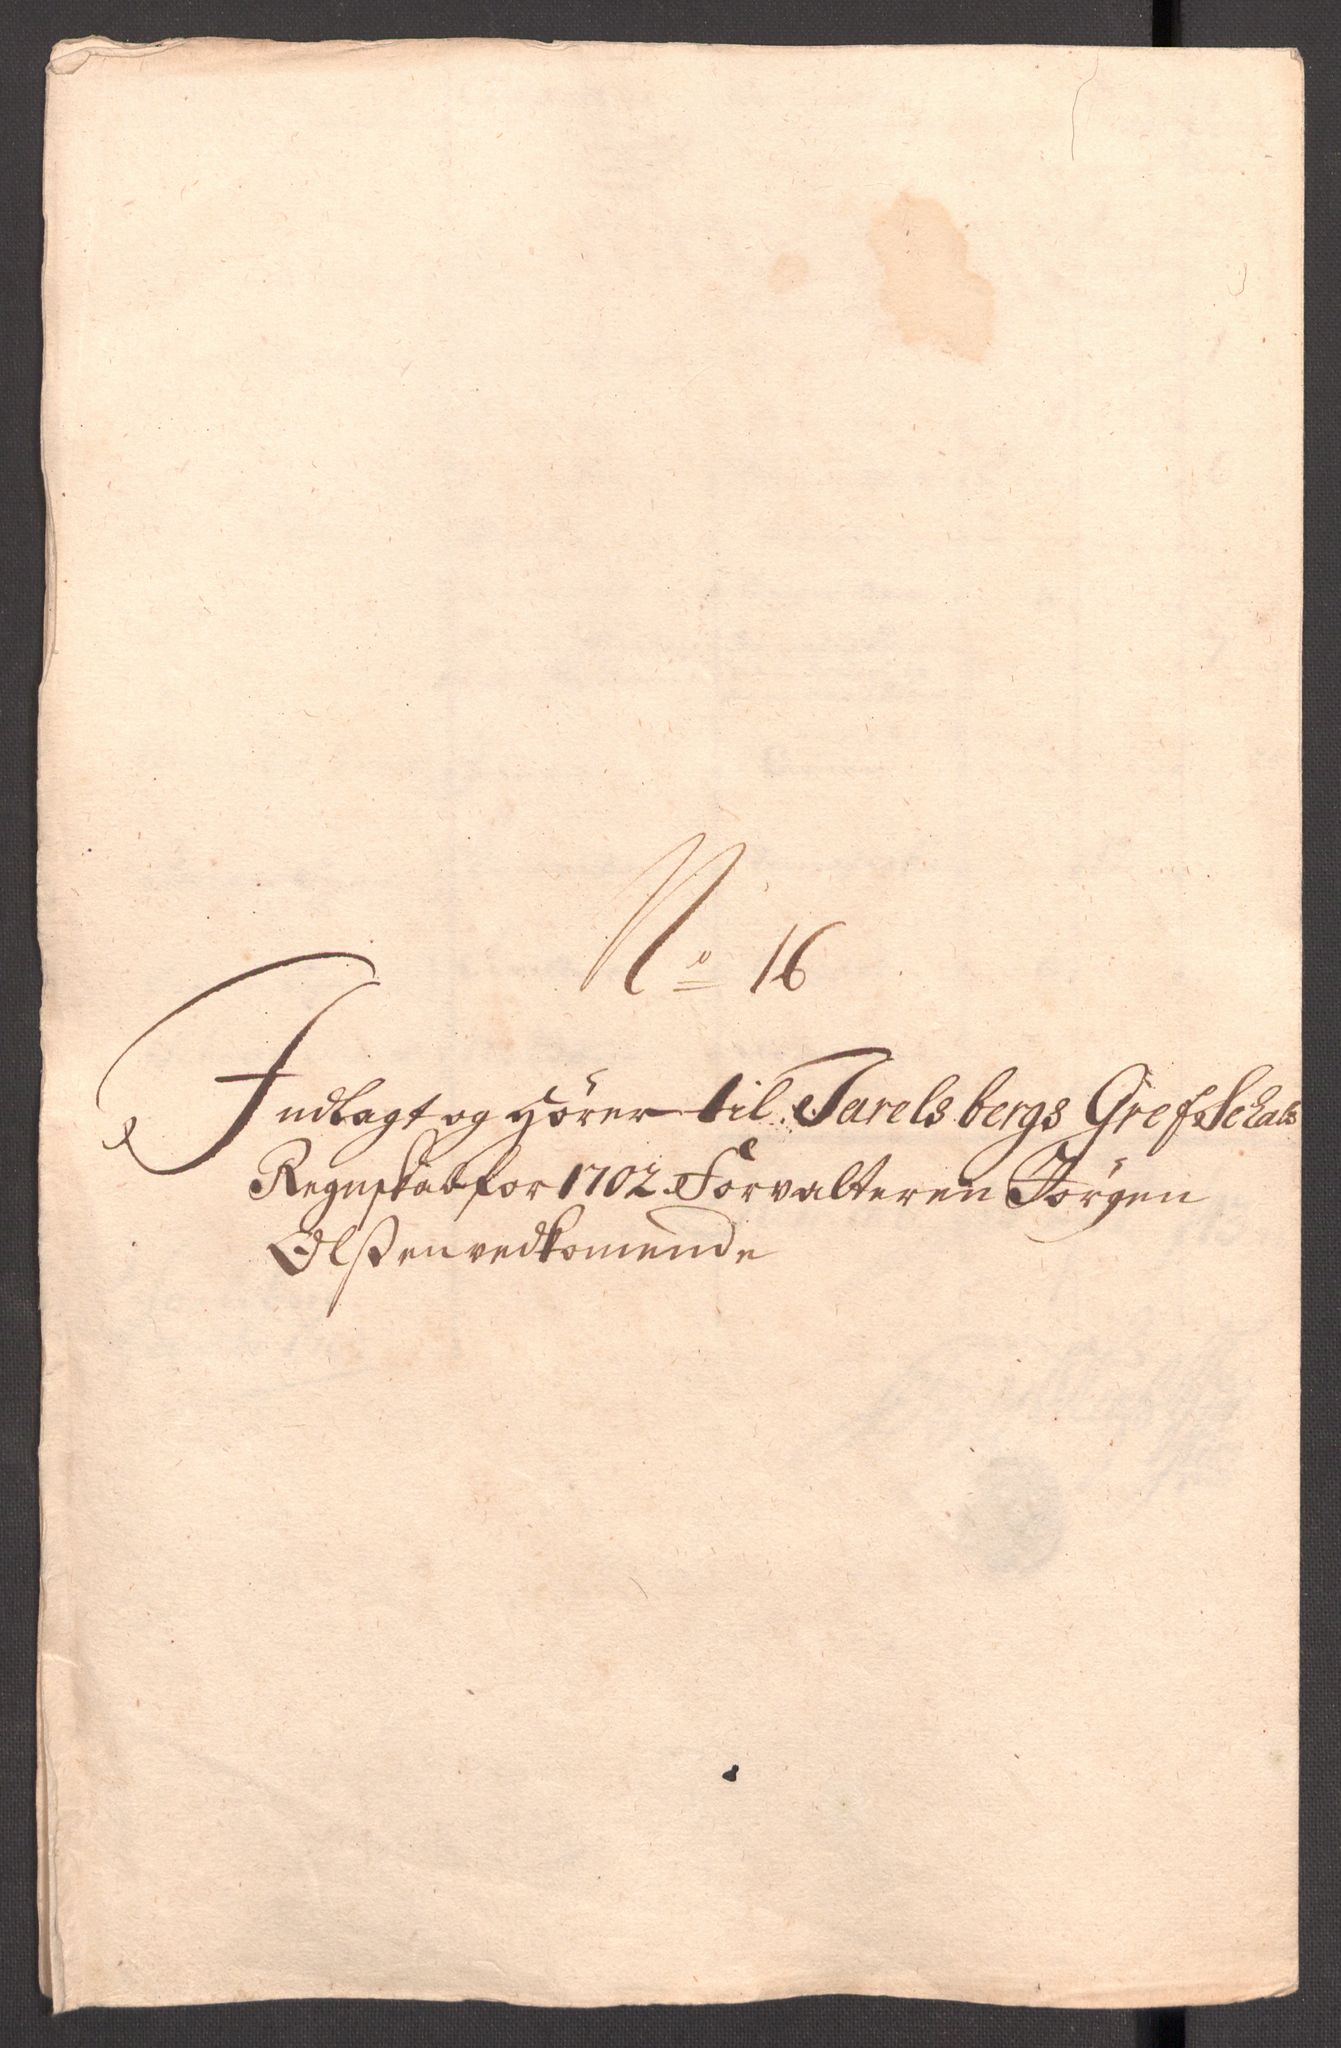 No 16
Indlagt og Hörer til Jarelsbergs Grefschabs
Regnskab for 1702. Forvalteren Jörgen
Olssen vedkomende